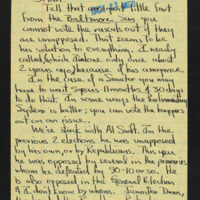 Tell that
from the Baltimore Sun you
cannot vote the rascals out if they
are unopposed. That seems to be
his solution to everything. I nearly
called (which
2 years ago because of his ignorance.
In the case of a Senator you may
have to wait 5 years 11 months & 30 days
to do that. In some ways the
System is better; you can vote the buggers
out on an issue.
We're stuck with Al Swift. In the
previous 2 elections he was unopposed
by his own, or by Republicans. This year
he was opposed by several in the primaries
whom he defeated by 30-10 or so. He
is also opposed in the General Election
& I don't know by whom. Jennifer Dunn,